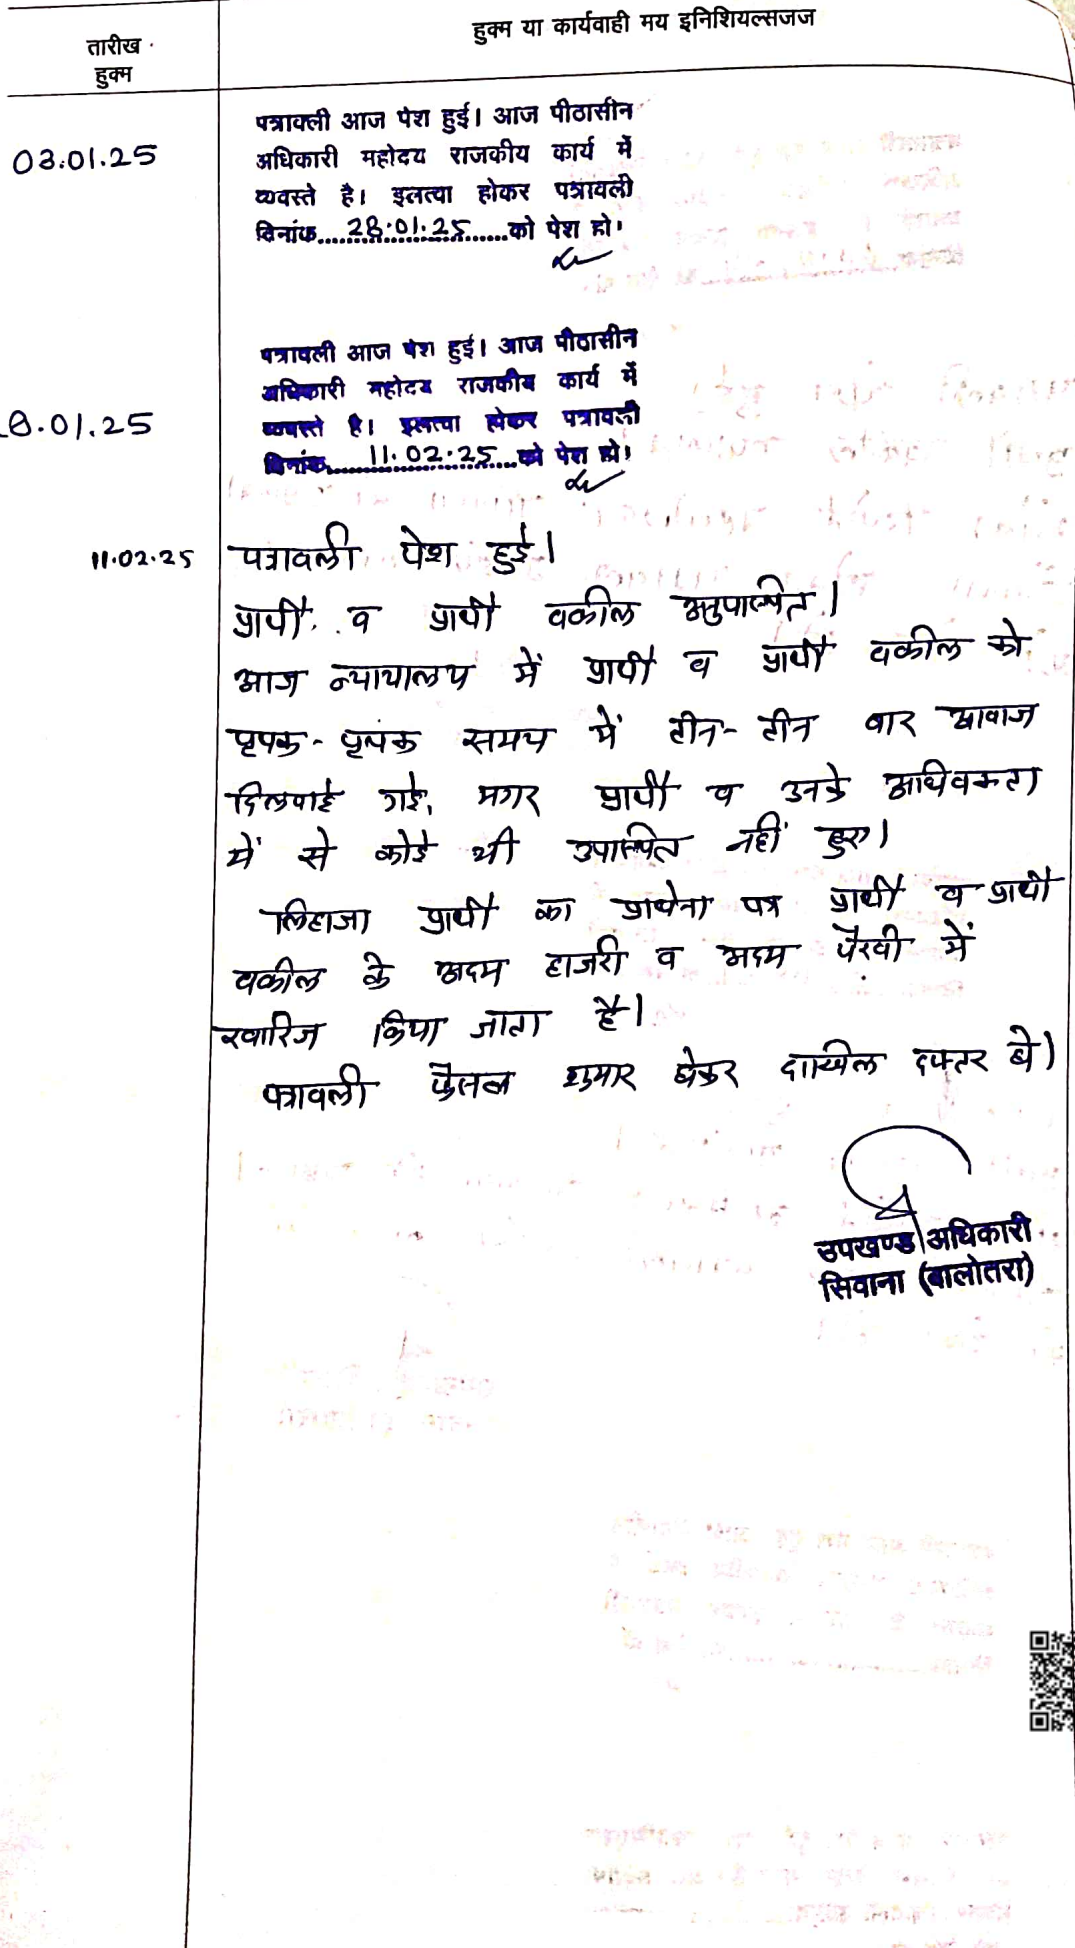 तारीख
हुक्म
हुक्म या कार्यवाही मय इनिशियल्सजज
03.01.25
पत्रावली आज पेश हुई। आज पीठासीन
अधिकारी महोदय राजकीय कार्य में
व्यवस्ते है। इलत्वा होकर पत्रावली
दिनांक....28.01.25....को पेश हो।
8.01.25
पत्रावली आज पेश हुई। आज पीठासीन
अधिकारी महोदय राजकीय कार्य में
व्यवस्ते है। इलत्वा होकर पत्रावली
दिनांक....11.02.25....को पेश हो।
11.02.25
पत्रावली पेश हुई।
प्रार्थी व प्रार्थी वकील अनुपस्थित।
आज न्यायालय में प्रार्थी व प्रार्थी वकील को
पृथक-पृथक समय में तीन-तीन बार आवाज
दिलवाई गई, मगर प्रार्थी व उनके अधिवक्ता
में से कोई भी उपस्थित नहीं हुए।
लिहाजा प्रार्थी का प्रार्थना पत्र प्रार्थी व प्रार्थी
वकील के अदम हाजरी व अदम पैरवी में
खारिज किया जाता है।
पत्रावली फैसल शुमार होकर दाखिल दफ्तर हो।
उपखण्ड अधिकारी
सिवाना (बालोतरा)